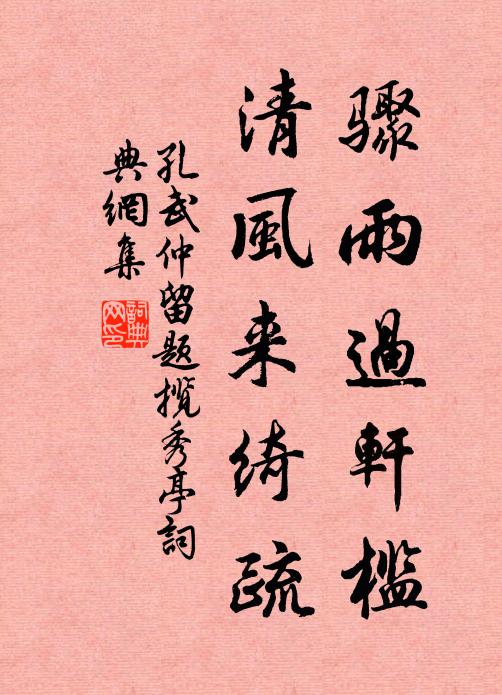 骤雨過軒檻
清風来綺疏
孔武仲留題攬秀亭詞
典網集
詞典
网印